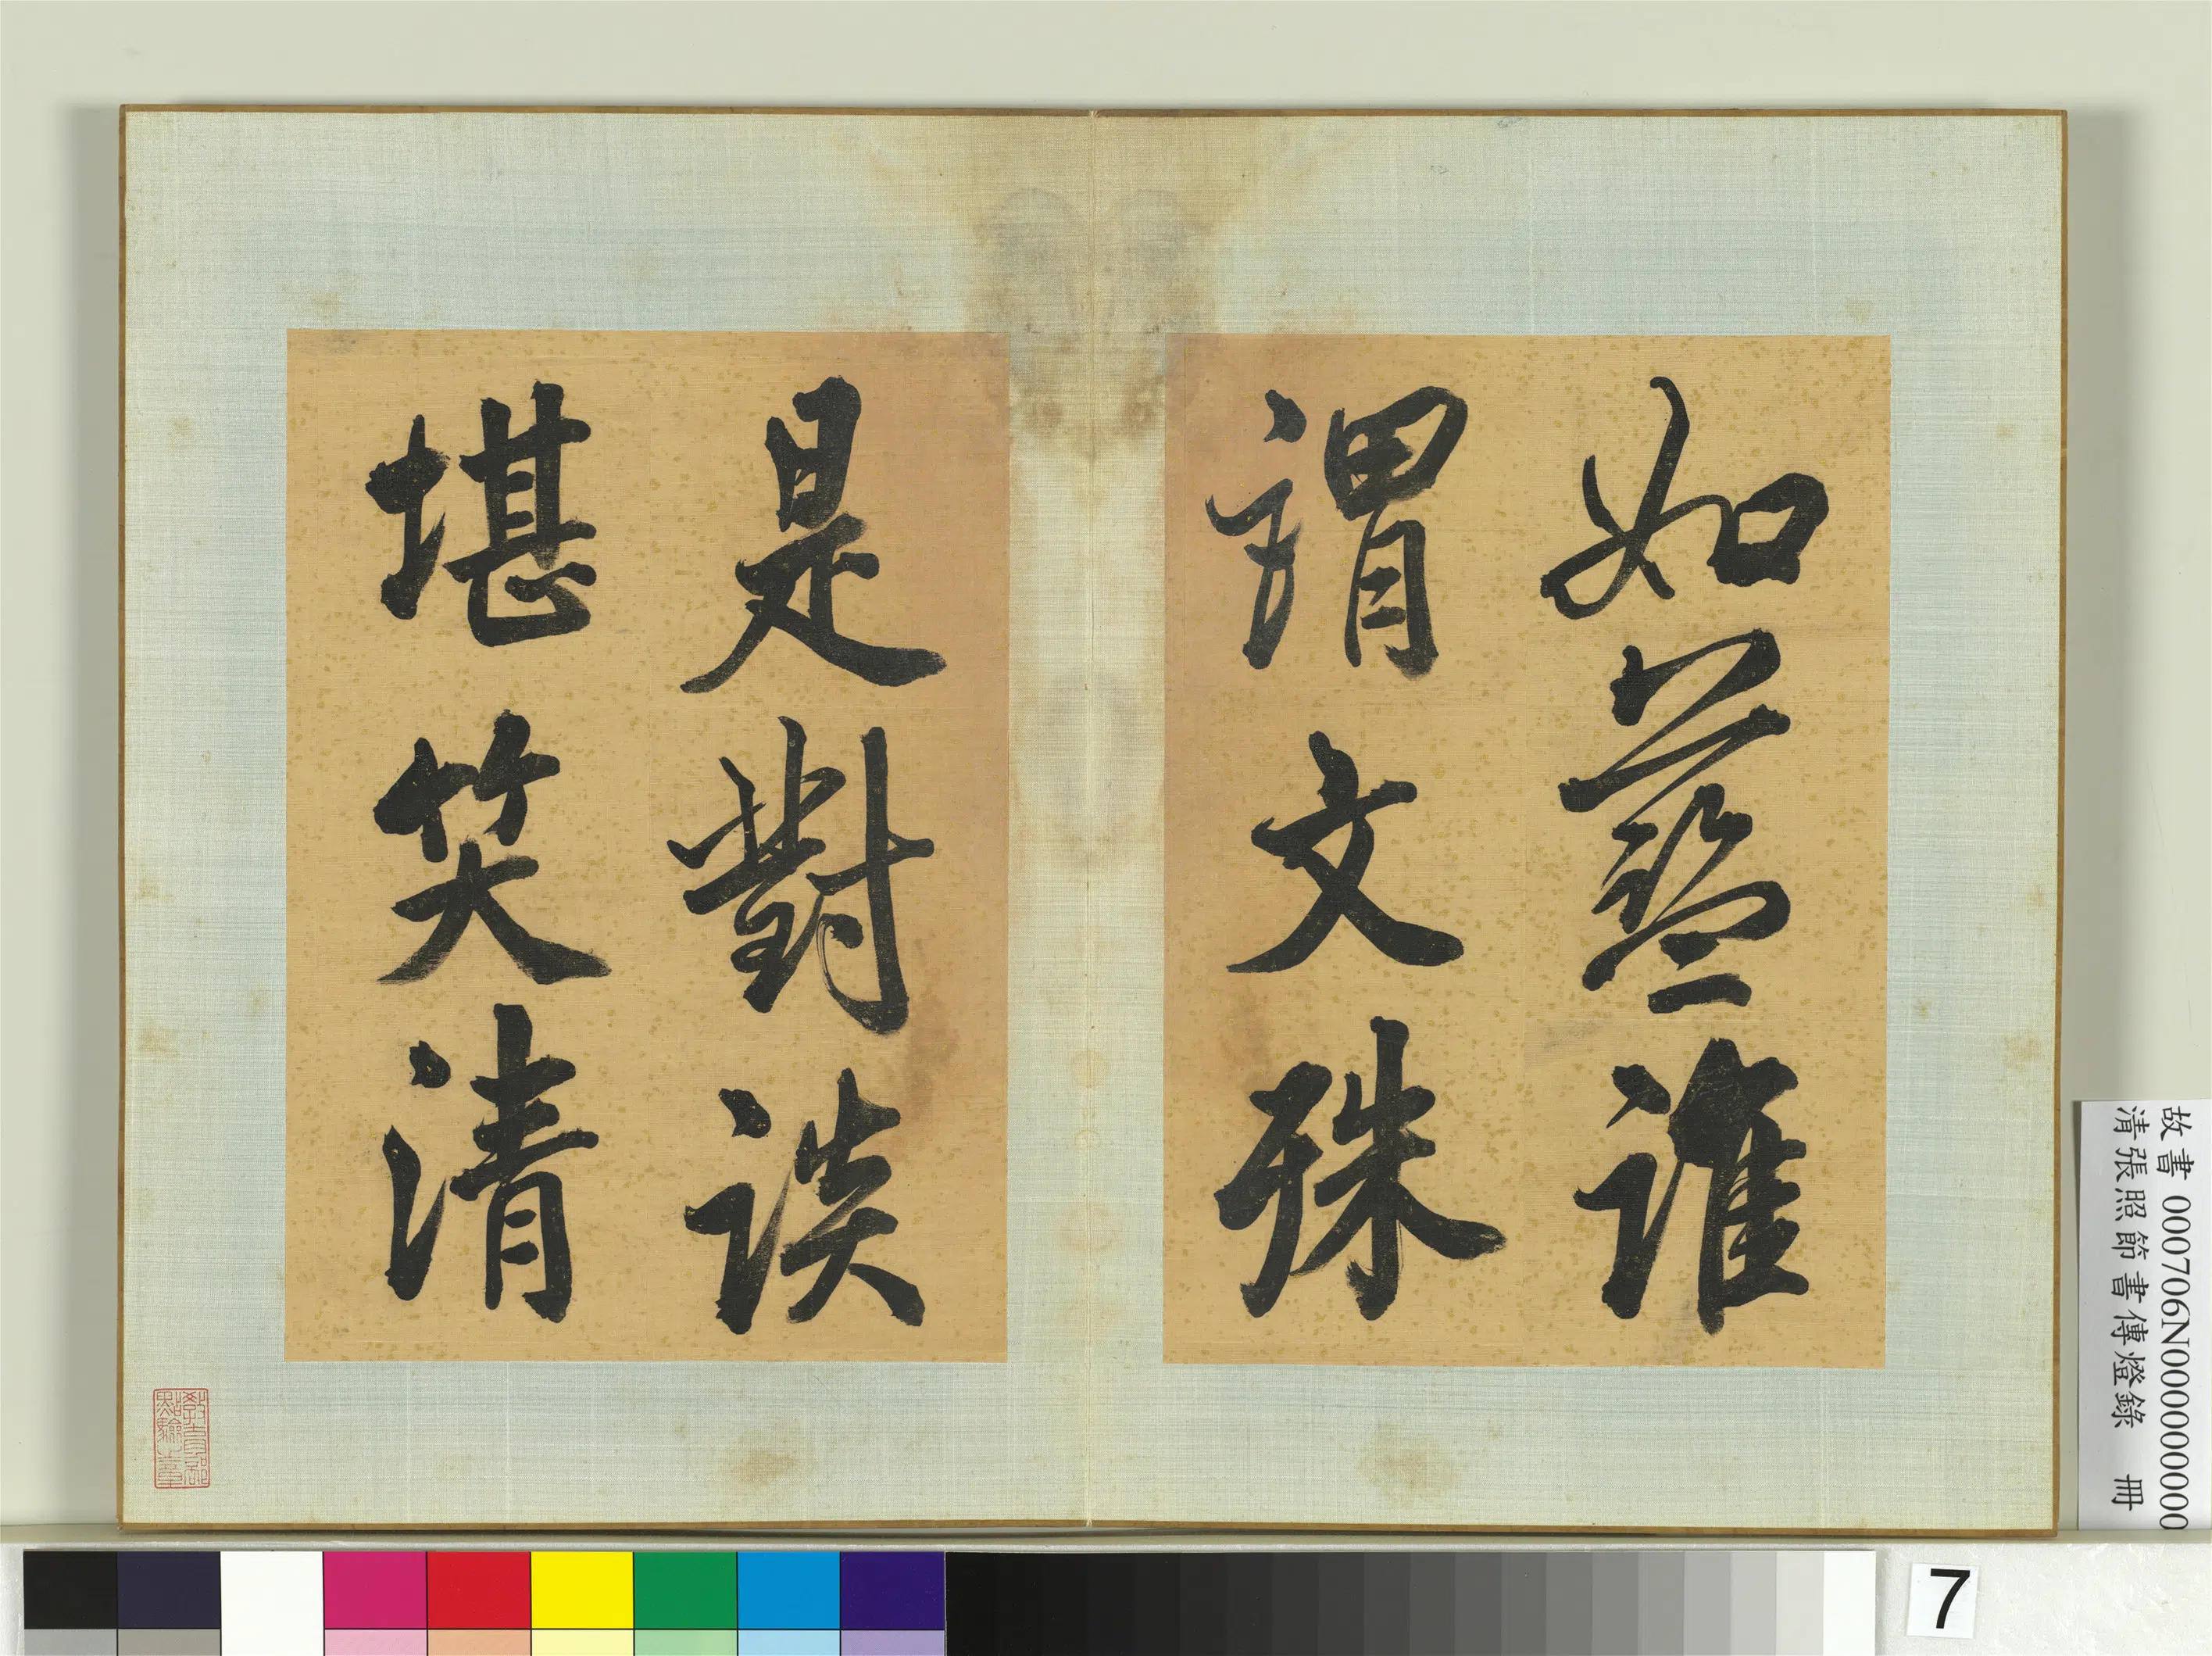 如藍誰
謂文殊
是對談
堪笑清
教育部
點驗之章
故書 000706N000000000
清張照節書傳燈錄 冊
7